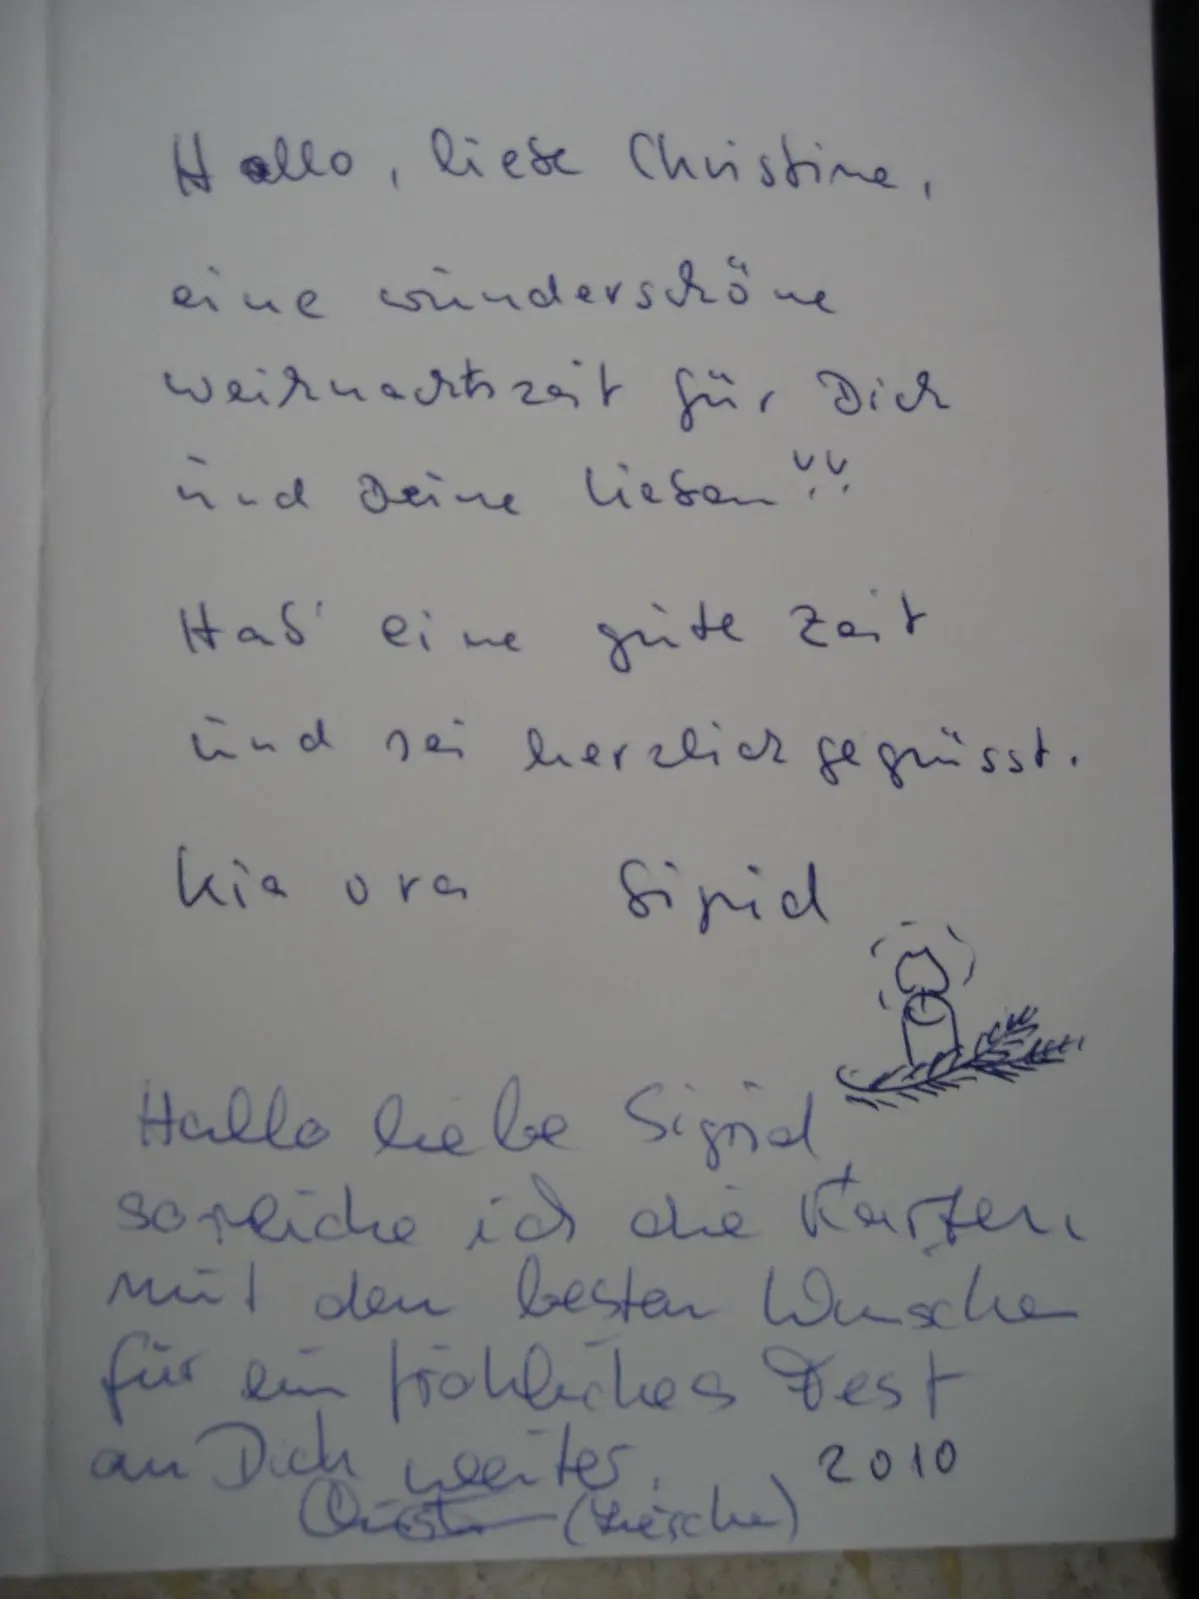 Hallo, liebe Christine,
eine wunderschöne
Weihnachtszeit für Dich
und Deine Lieben!!
Hab' eine gute Zeit
und sei herzlich gegrüsst.
Kia ora Sigrid
Hallo liebe Sigrid
so reiche ich die Karten
mit den besten Wünschen
für ein fröhliches Fest
an Dich weiter.
2010